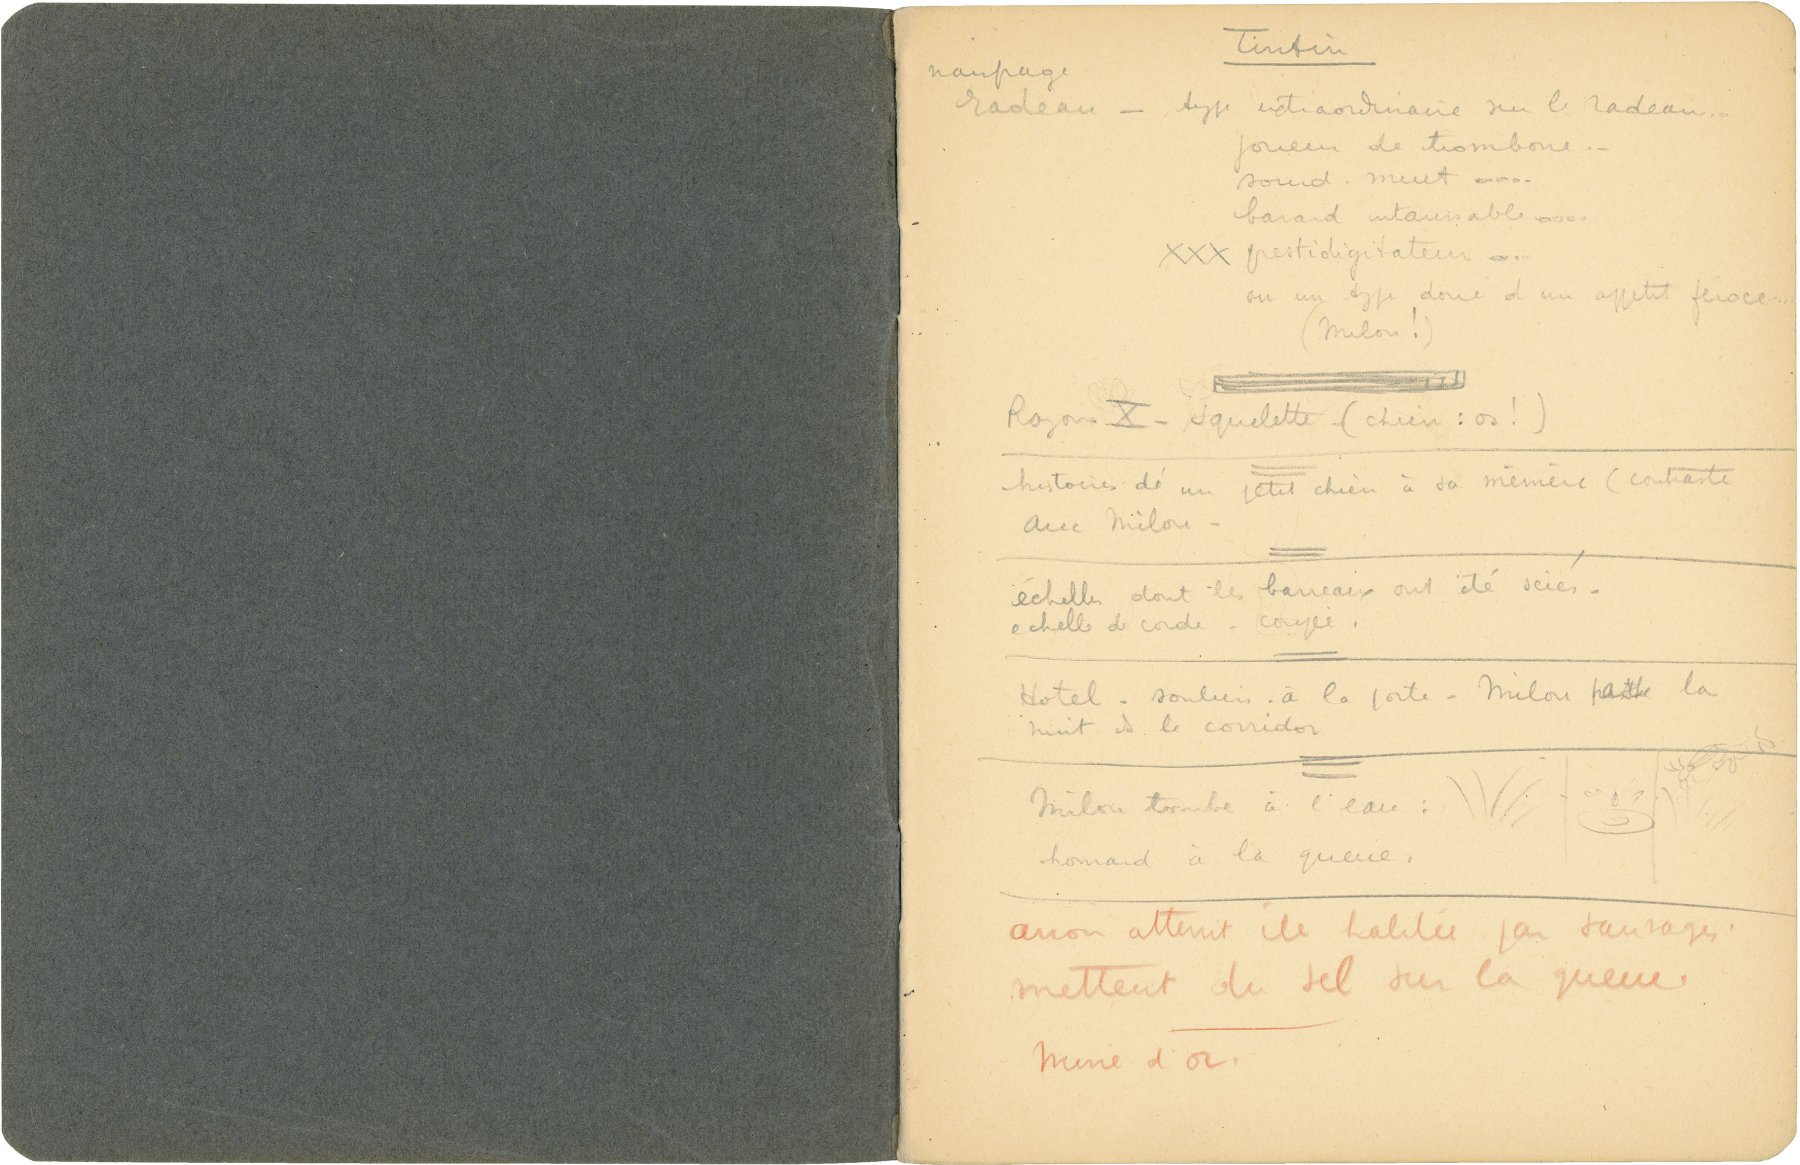 Tintin
naufrage
radeau — type extraordinaire sur le radeau..
joueur de trombone..
sourd. muet ....
bavard intarissable ....
XXX prestidigitateur ...
ou un type doué d'un appétit féroce...
(Milou!)
Rayons X - squelette - (chien : os!)
histoires d' un petit chien à sa mémère (contraste
avec Milou -
échelles dont les barreaux ont été sciés.
echelle de corde - coupée.
Hotel - souliers . à la porte - Milou passe la
nuit ds le corridor
Milou tombe à l'eau :
homard à la queue.
avion atterrit île habitée par sauvages.
mettent du sel sur la queue.
Mine d'or.